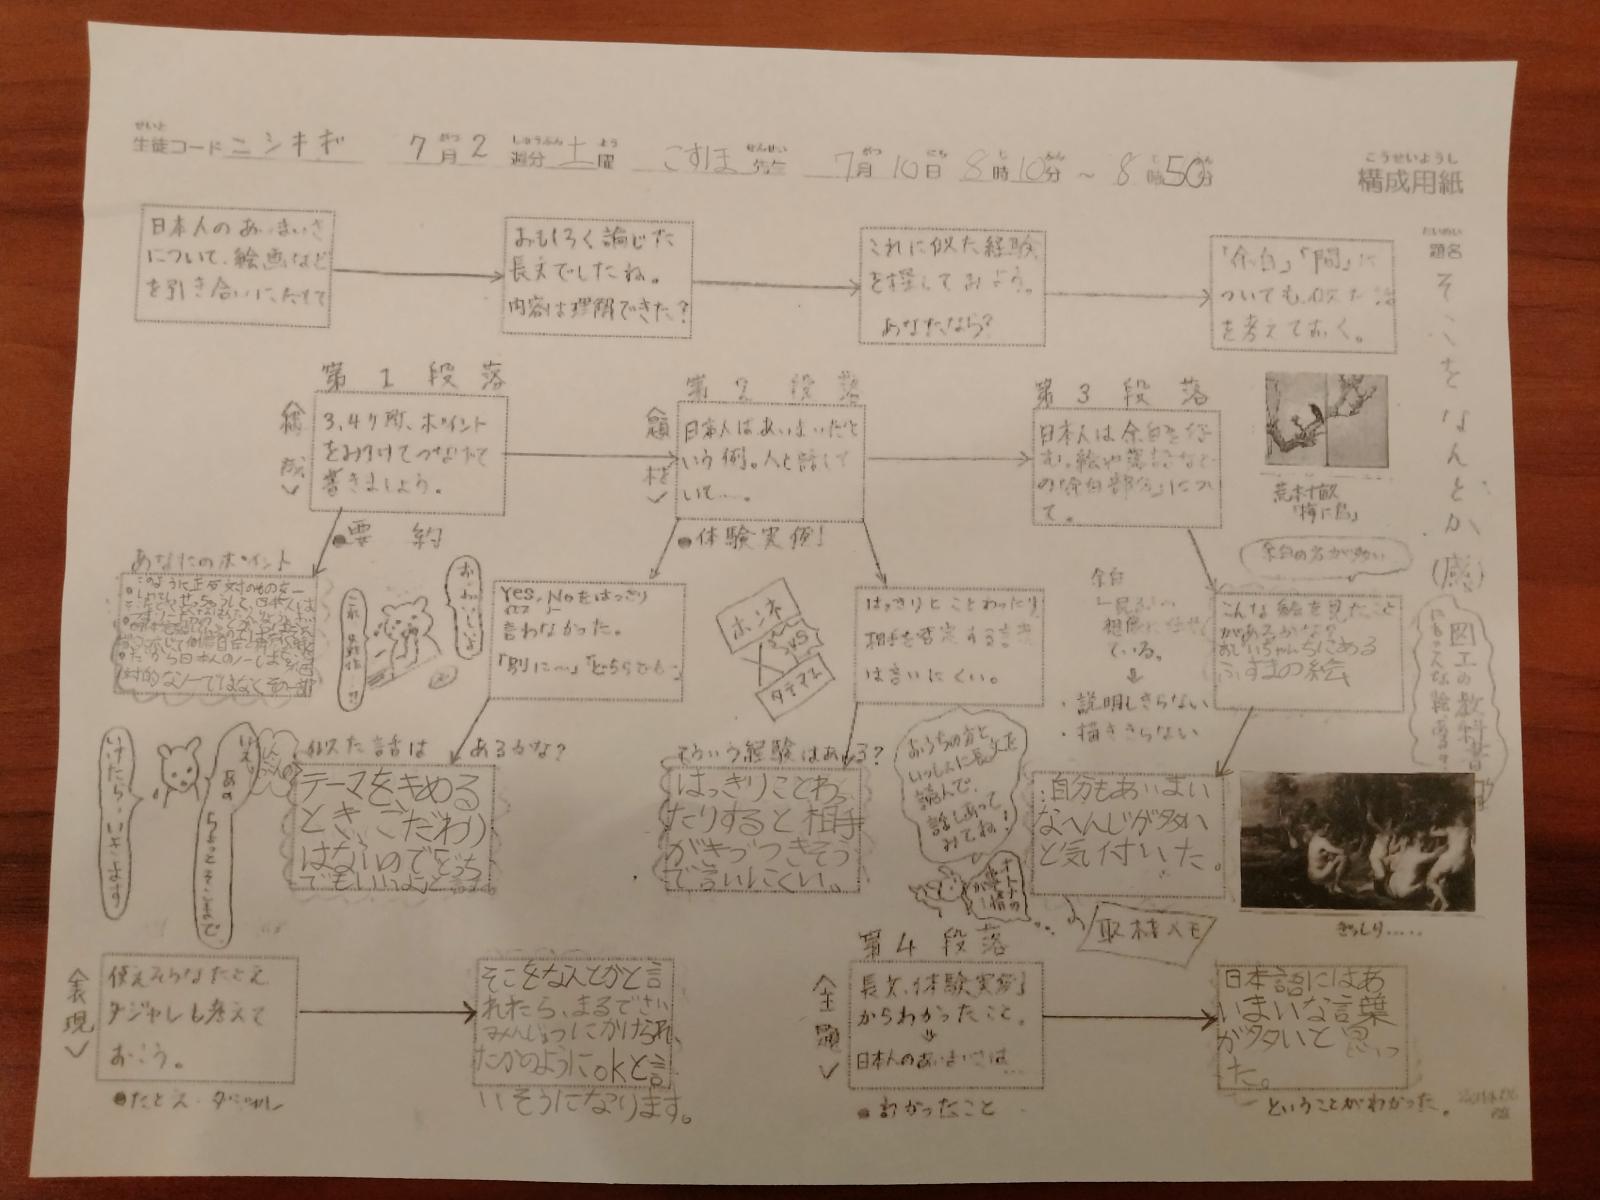 せいと
生徒コード ニシキギ 7月2週分 土曜 こすほ先生 7月10日 8時10分 ~ 8時50分
こうせいようし
構成用紙
だいめい
題名 そこをなんとか(感)
日本人のあいまいさ
について、絵画など
を引き合いにたてて
おもしろく論じた
長文でしたね。
内容は理解できた?
これに似た経験
を探してみよう。
あなたなら?
「余白」「間」に
ついても似た話
を考えておく。
第1段落
<構成>
3、4ヶ所、ポイント
をみつけてつなげて
書きましょう。
●要約
第2段落
<題材>
日本人はあいまいだと
いう例。人と話して
いて…。
●体験実例
第3段落
日本人は余白を好
む。絵や落語など
の「余白部分」につい
て。
荒木村重
「梅に鳥」
余白の方が多い
あなたのポイント
このように正反対のものを
だから日本人のノーは
対的なノーではなくその一部
おいしいよ
Yes,Noをはっきり
言わなかった。
「別に〜」「どちらでも…」
ホンネ
VS
タテマエ
はっきりとことわったり
相手を否定する言葉
は言いにくい。
余白
想像に任せ
ている。
⇓
・説明しきらない
・描ききらない
こんな絵を見たこと
があるかな?
おじいちゃんちにある
ふすまの絵
図工の教科書
にもこんな絵ある?
いけたら、いきます。
いえ、あの、ちょっとそこまで
似た話はあるかな?
テーマをきめる
ときこだわり
はないのでどっち
でもいいよと言う
そういう経験はある?
はっきりことわっ
たりすると相手
がキづつきそう
で言いにくい。
おうちの方と
いっしょに長文を
読んで、
話しあって
みてね!
オトナの
事情
が…
自分もあいまい
なへんじが多い
と気付いた。
取材メモ
ぎっしり……
<表現>
使えそうなたとえ
ダジャレも考えて
おこう。
●たとえ・ダジャレ
そこをなんとかと言
われたら、まるでさい
みんじゅつにかけられ
たかのようにokと言
いそうになります。
第4段落
<主題>
長文、体験実例
からわかったこと。
⇓
日本人のあいまいさは…
●わかったこと
日本語にはあ
いまいな言葉
が多いと思っ
た。
ということがわかった。